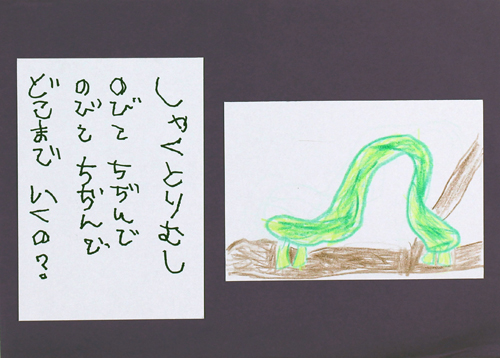 しゃくとりむし
のびて ちぢんで
のびて ちぢんで
どこまで いくの?。